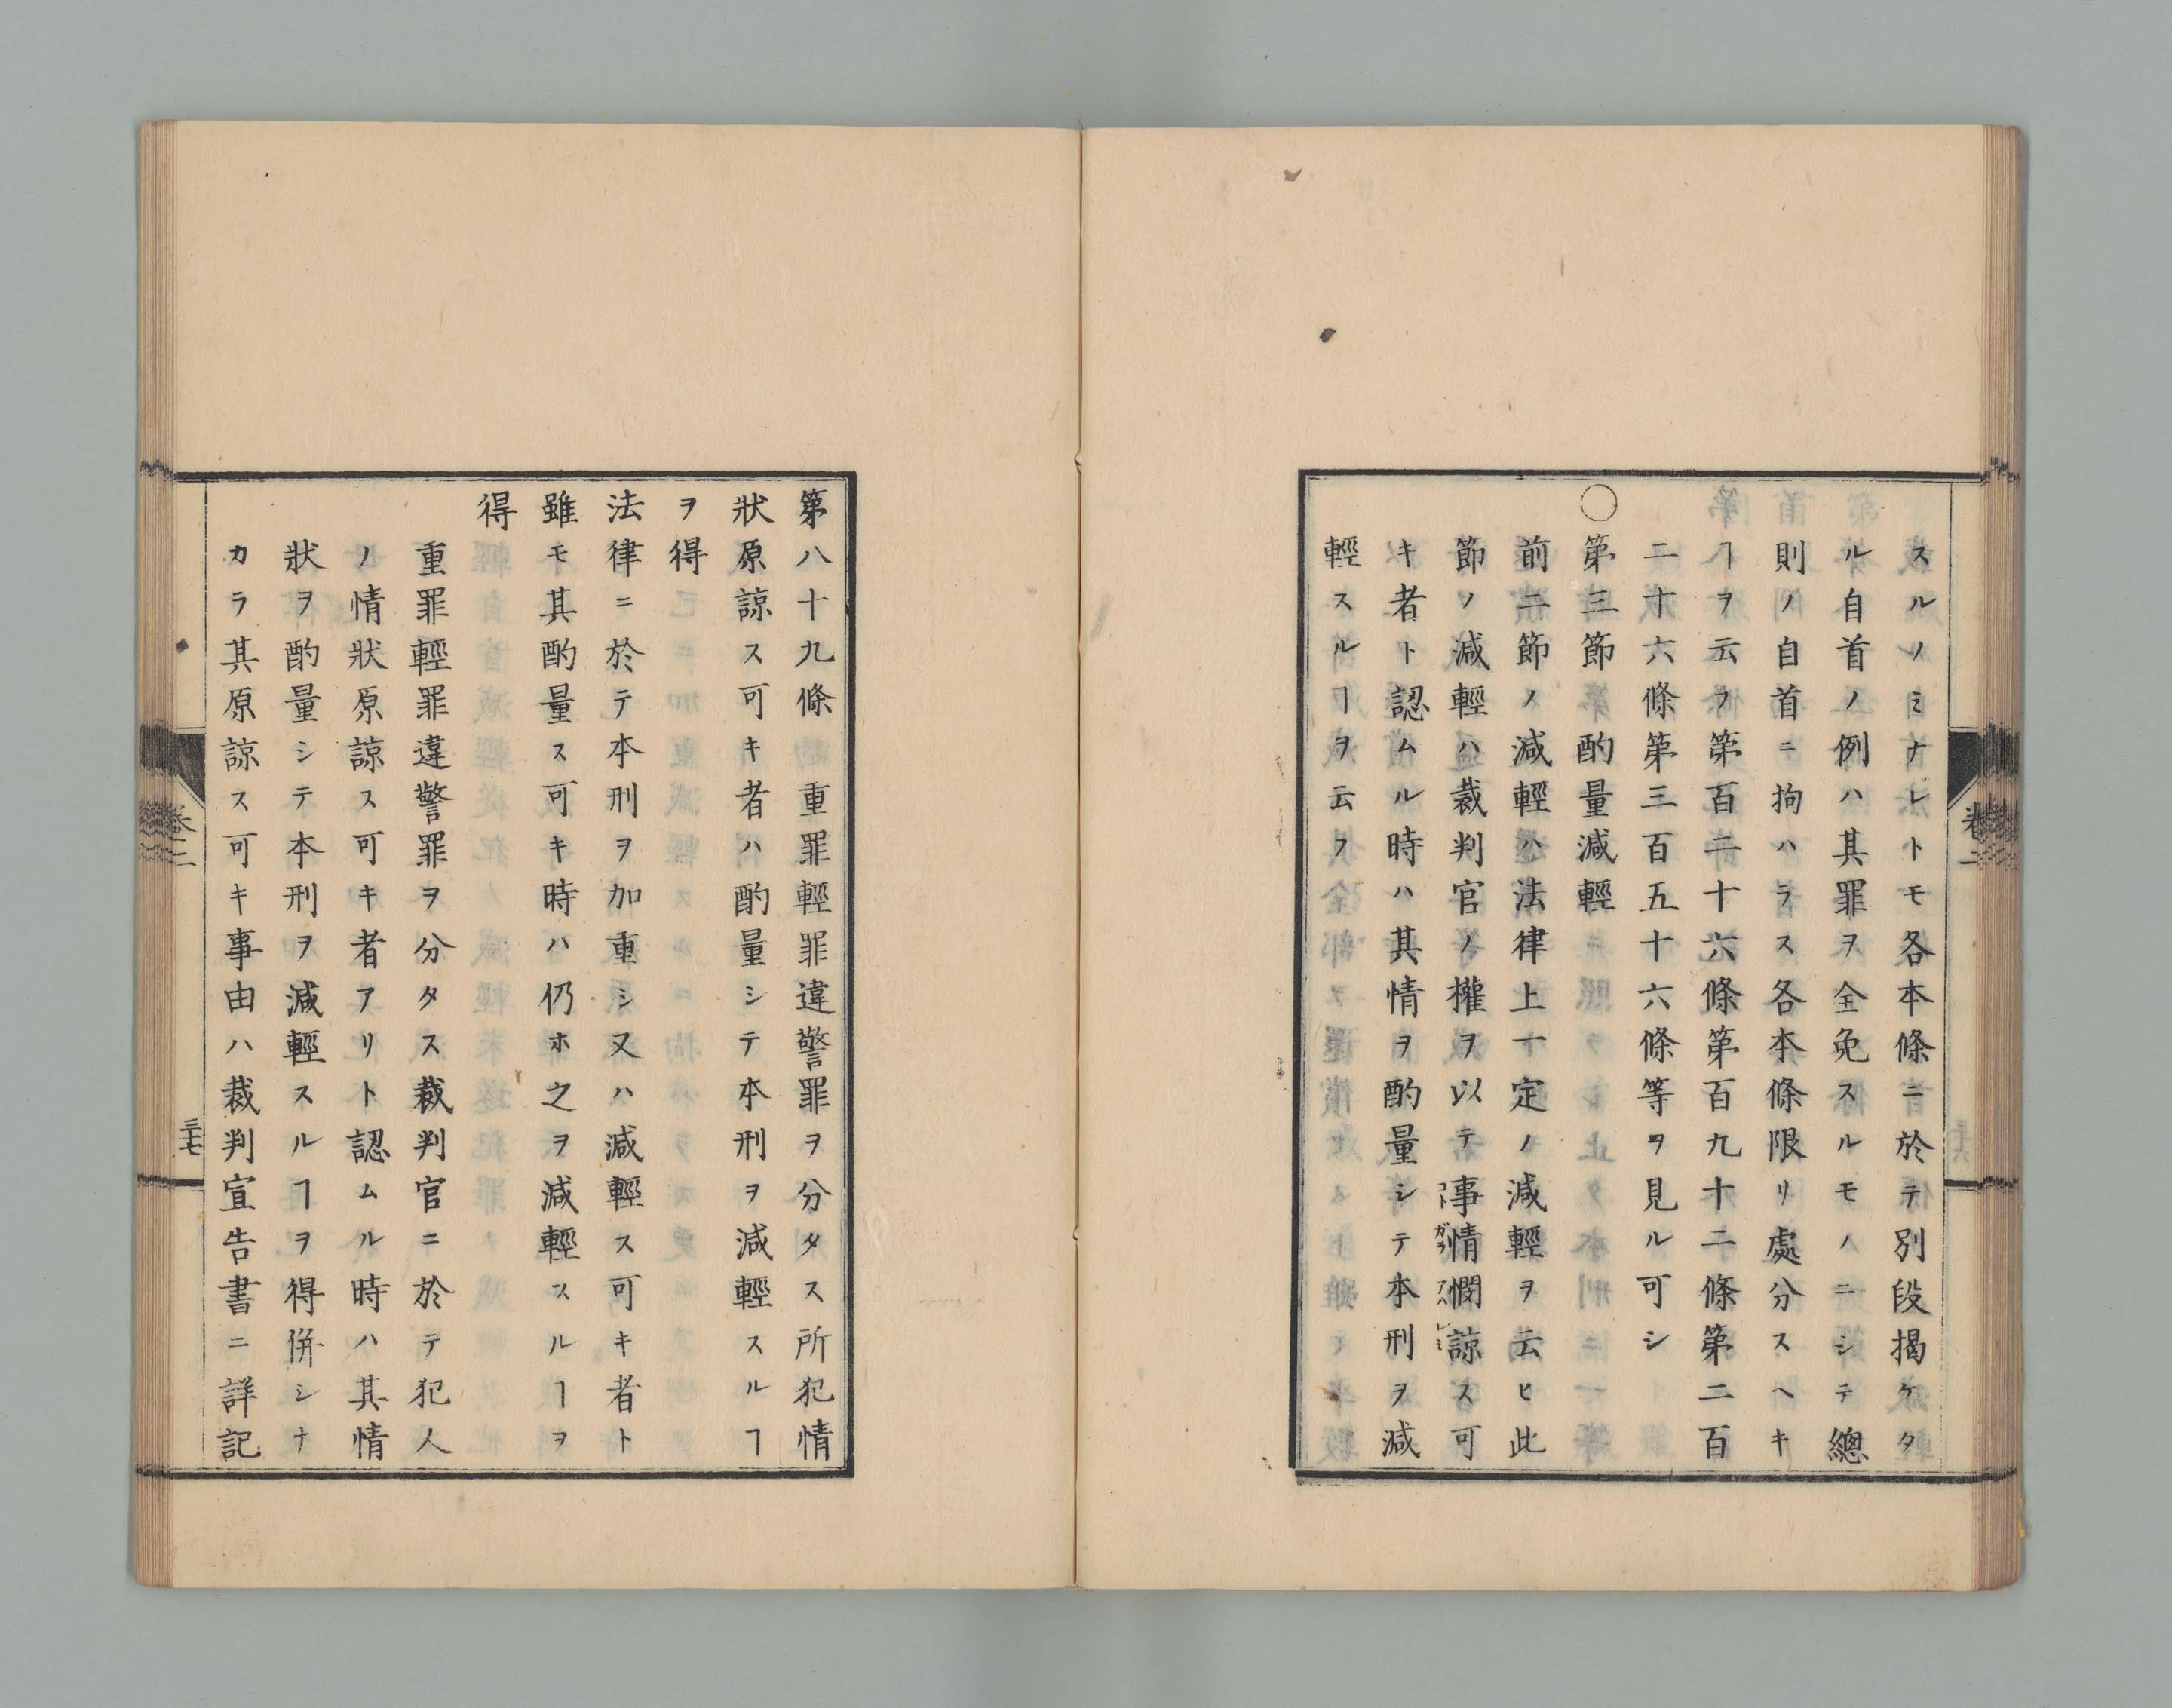 スルノミナレトモ各本條ニ於テ別段揭ケタ
ル自首ノ例ハ其罪ヲ全免スルモノニシテ總
則ノ自首ニ拘ハラス各本條限リ處分スヘキ
ヿヲ云フ第百二十六條第百九十二條第二百
二十六條第三百五十六條等ヲ見ル可シ
○第三節酌量減輕
前二節ノ減輕ハ法律上一定ノ減輕ヲ云ヒ此
節ノ減輕ハ裁判官ノ權ヲ以テ事情憫諒ス可
キ者ト認ムル時ハ其情ヲ酌量シテ本刑ヲ減
輕スルヿヲ云フ
卷二
第八十九條 重罪輕罪違警罪ヲ分タス所犯情
狀原諒ス可キ者ハ酌量シテ本刑ヲ減輕スルヿ
ヲ得
法律ニ於テ本刑ヲ加重シ又ハ減輕ス可キ者ト
雖モ其酌量ス可キ時ハ仍ホ之ヲ減輕スルヿヲ
得
重罪輕罪違警罪ヲ分タス裁判官ニ於テ犯人
ノ情狀原諒ス可キ者アリト認ムル時ハ其情
狀ヲ酌量シテ本刑ヲ減輕スルヿヲ得併シナ
カラ其原諒ス可キ事由ハ裁判宣告書ニ詳記
卷二
三十七